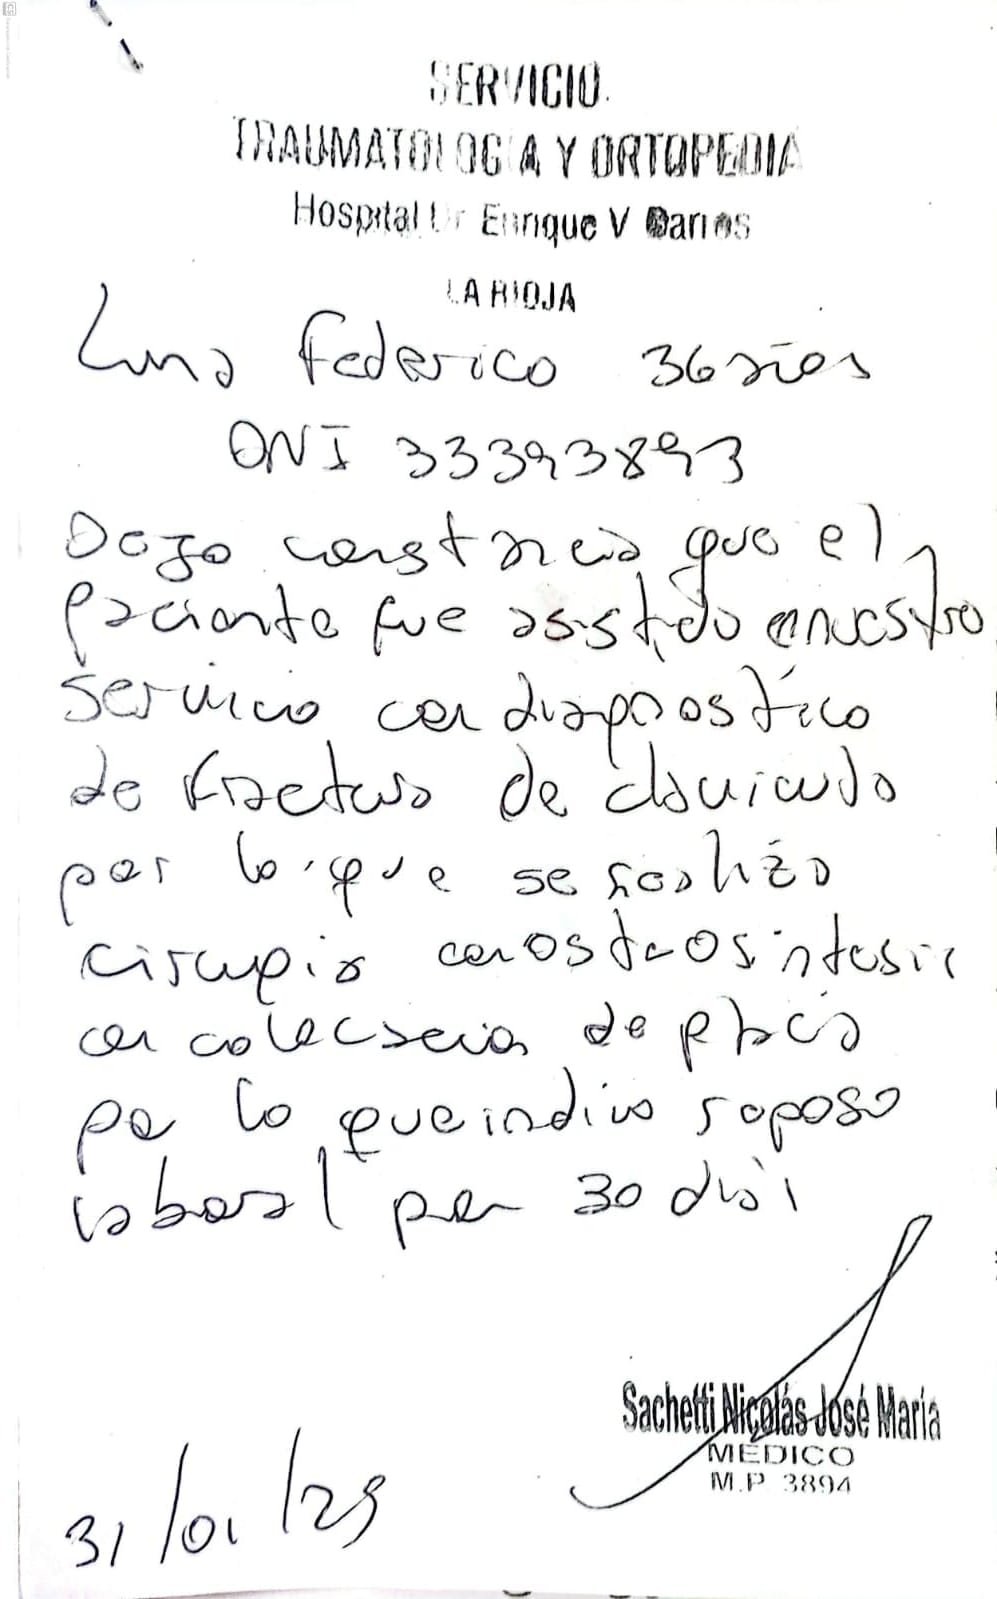 SERVICIO
TRAUMATOLOGIA Y ORTOPEDIA
Hospital Dr Enrique V Barros
LA RIOJA
Luna Federico 36 años
DNI 33393893
Dejo constancia que el
paciente fue asistido en nuestro
servicio con diagnostico
de fractura de clavicula
por lo que se realizo
cirugia con osteosintesis
con colocacion de placa
por lo que indico reposo
laboral por 30 dias
Sachetti Nicolás José María
MEDICO
M.P 3894
31/01/25